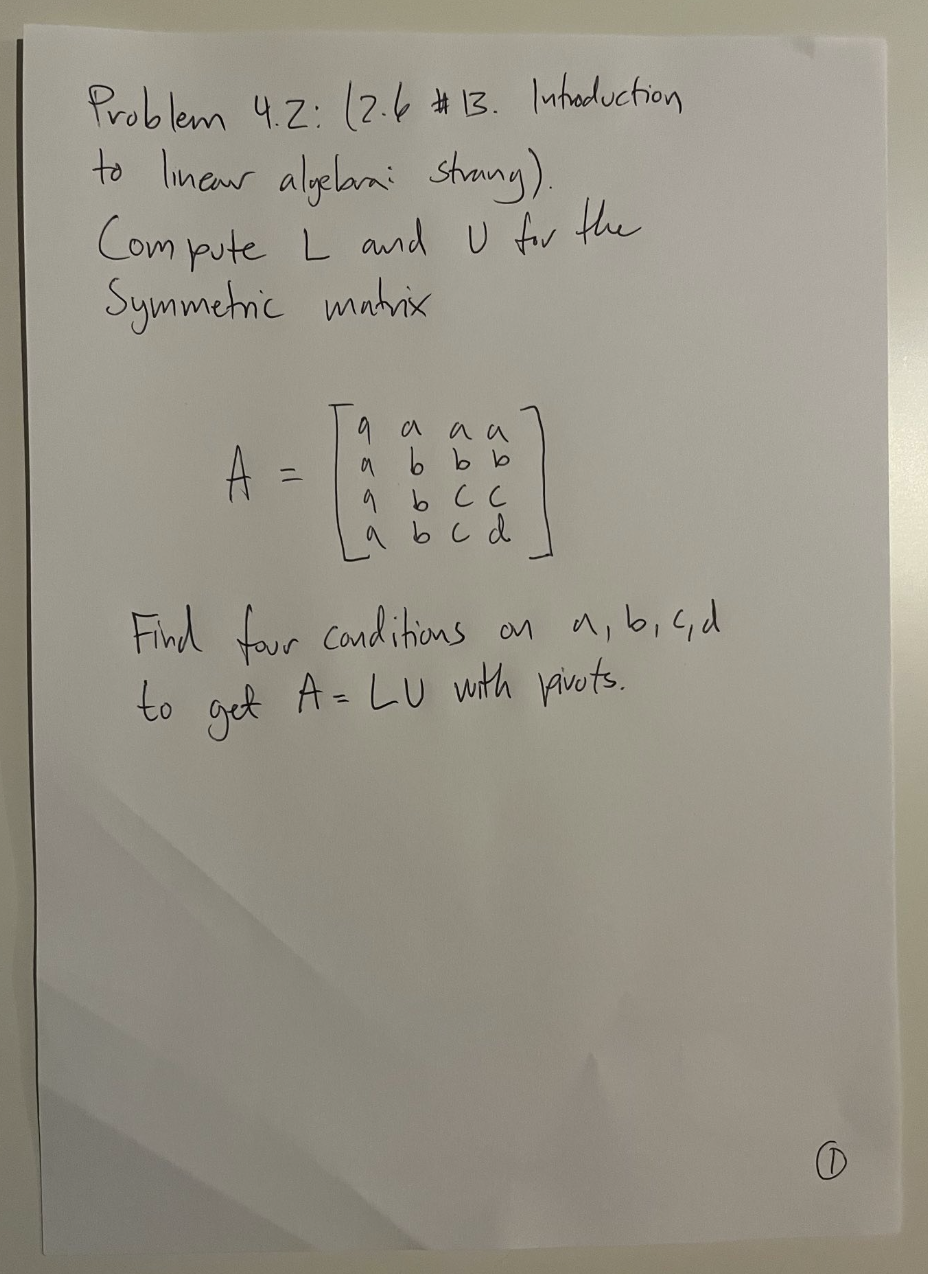 Problem 4.2: (2.6 #13. Introduction
to linear algebra: strang).
Compute L and U for the
Symmetric matrix
A = [a a a a
a b b b
a b c c
a b c d]
Find four conditions on a, b, c, d
to get A = LU with pivots.
①